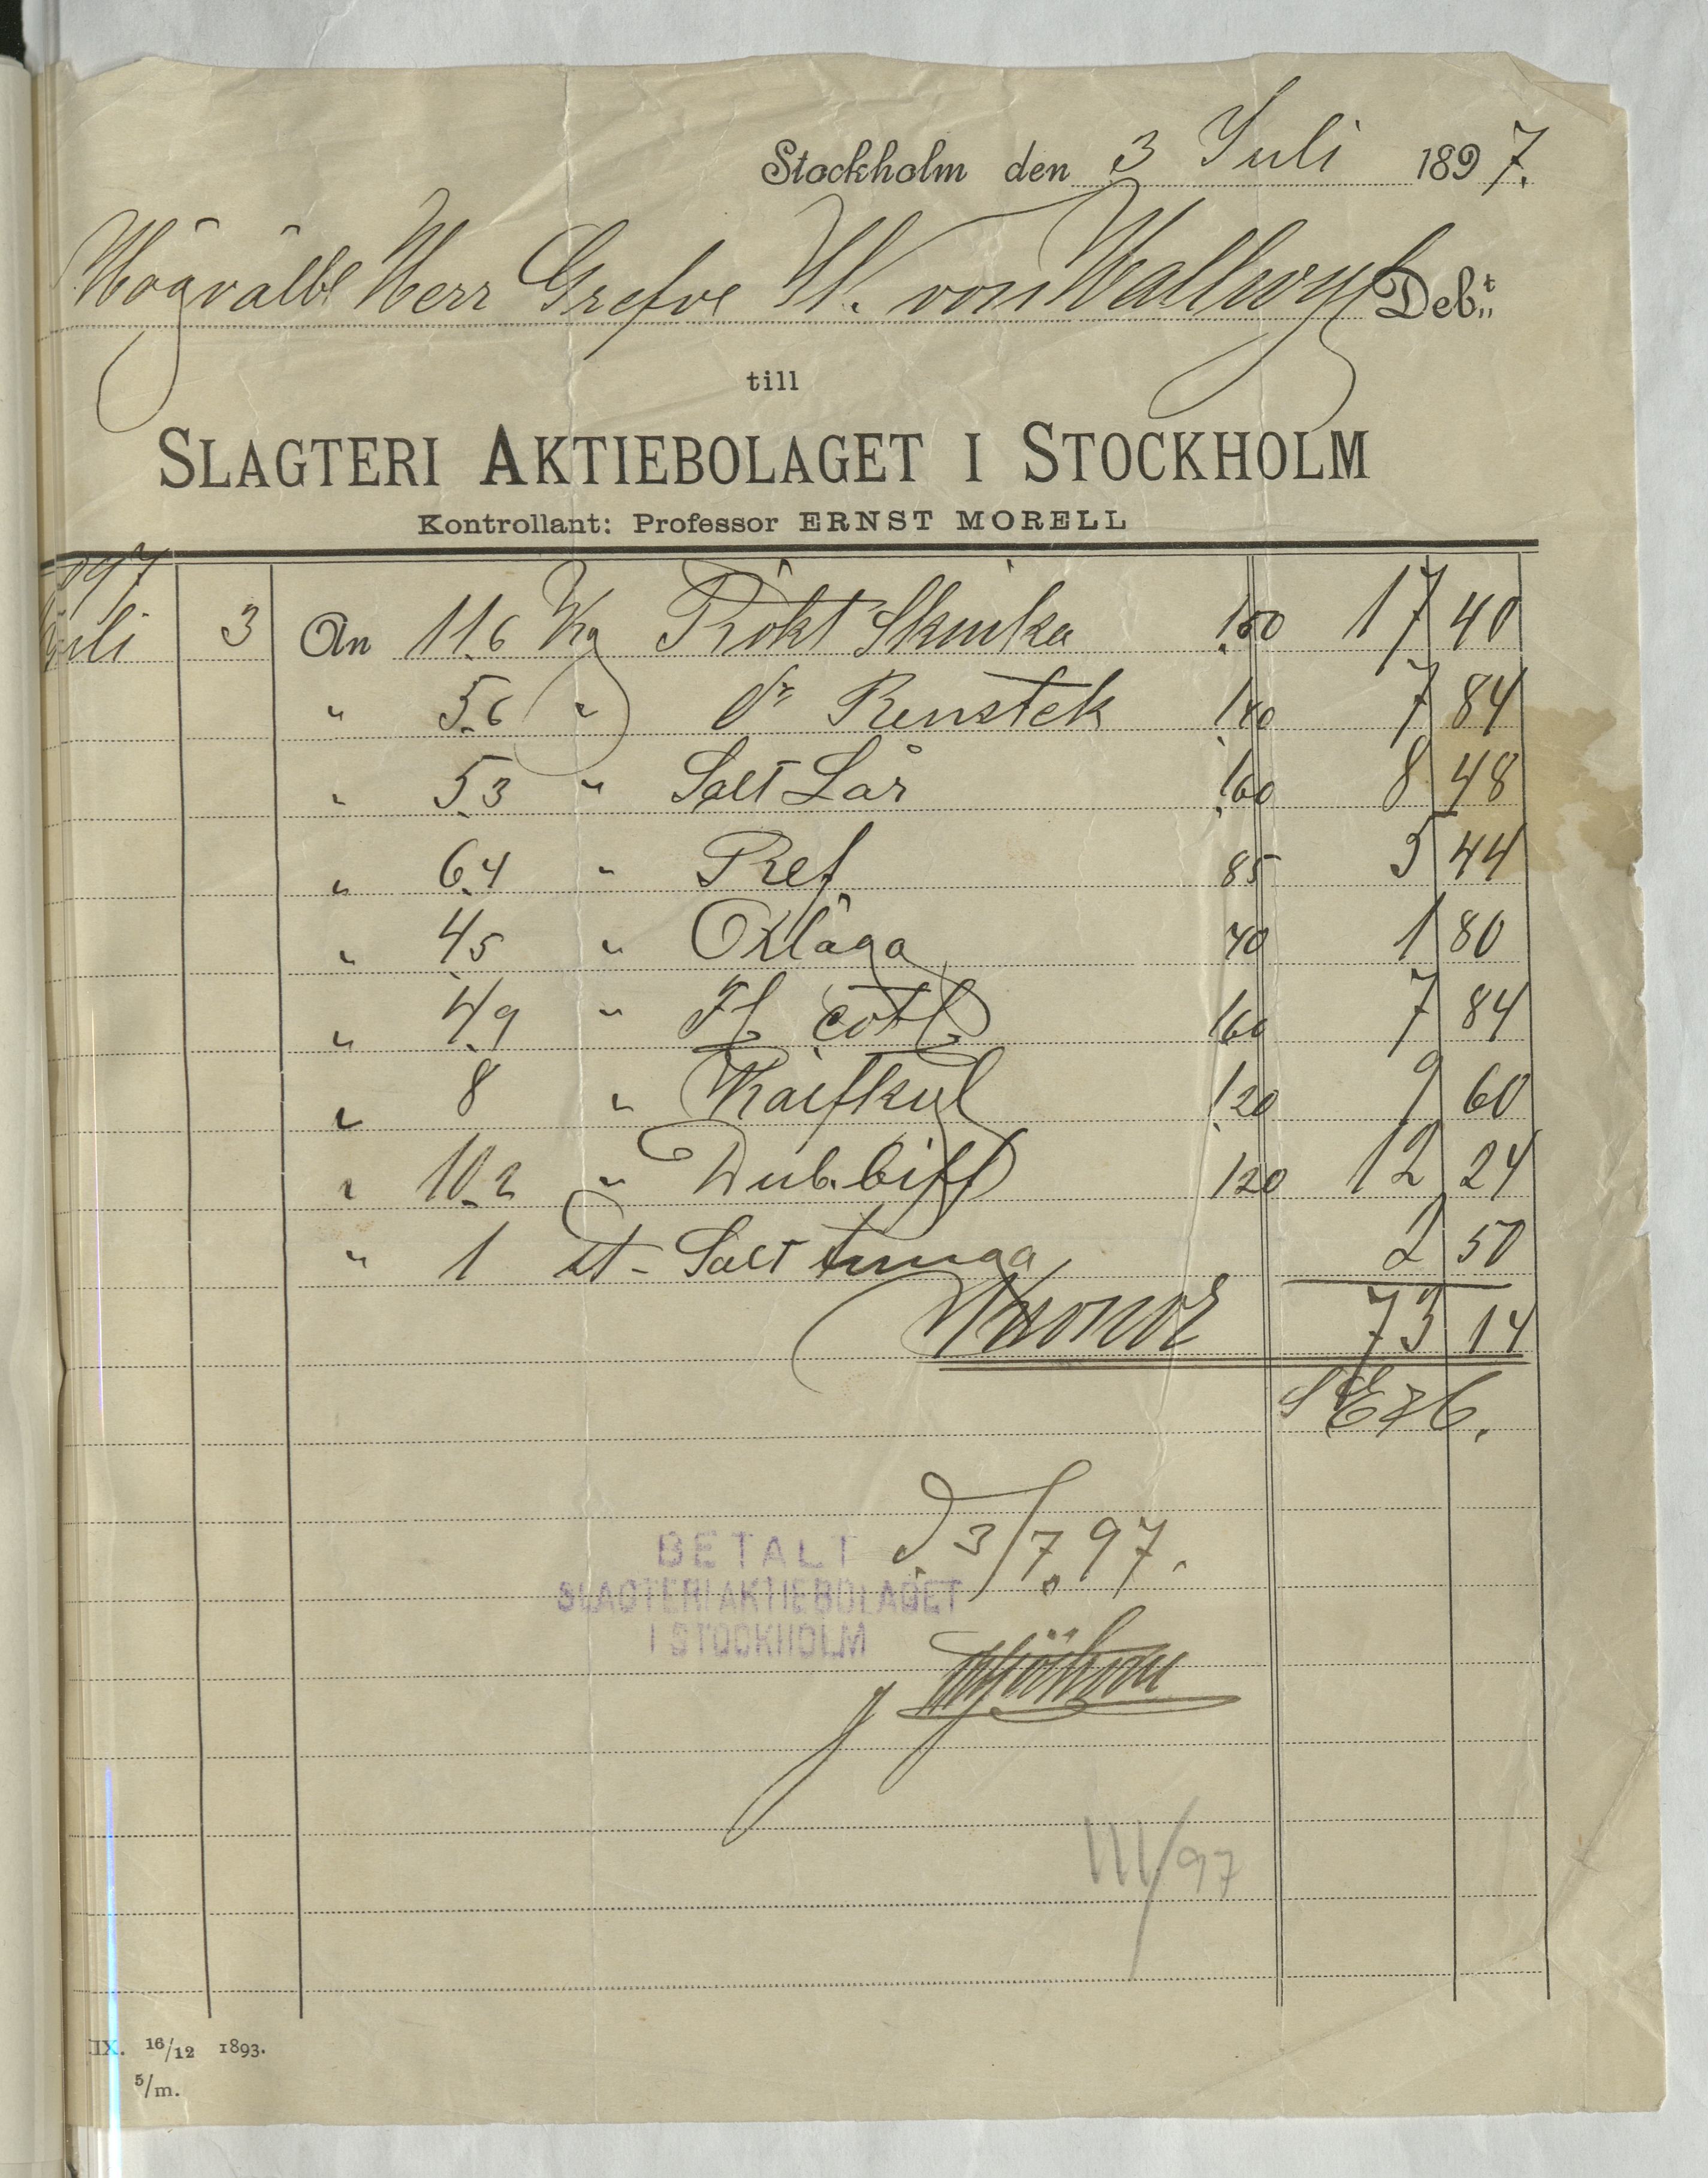 Stockholm den 3 Juli 1897.
Högvälbl Herr Grefve W. von Hallwyl Deb:t
till
SLAGTERI AKTIEBOLAGET I STOCKHOLM
Kontrollant: Professor ERNST MORELL
1897
Juli 3 An 11.6 Kg Rökt Skinka 1.50 17 40
" 5.6 " d:o Renstek 1.40 7 84
" 5.3 " Salt Lår 1.60 8 48
" 6.4 " Ref. 85 5 44
" 4.5 " Oxlägg 40 1 80
" 4.9 " Fl. cotl. 160 7 84
" 8 " Kalfkyl 1.20 9 60
" 10.2 " Dub.biff 120 12 24
" 1 st - Salt tunga 2 50
Kronor 73 14
S. E. & O.
BETALT d. 3/7 97.
SLAGTERIAKTIEBOLAGET
I STOCKHOLM
III/97
IX. 16/12 1893.
5/m.